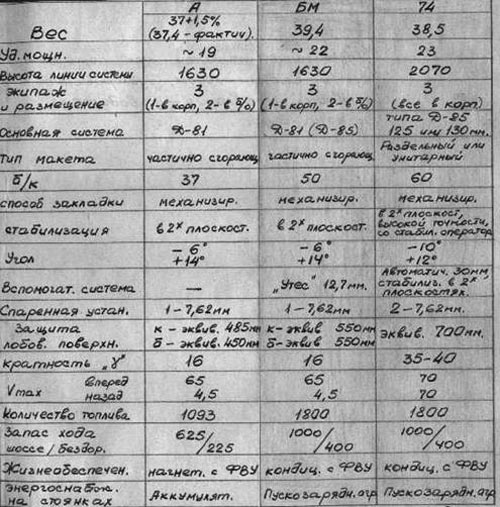 А БМ 74
Вес 37+1,5% (37,4 - фактич). 39,4 38,5
Уд. мощн. ~ 19 ~ 22 23
Высота линии системы 1630 1630 2070
экипаж и размещение 3 (1-в корп, 2-в б/о) 3 (1-в корп, 2-в б/о) 3 (все в корп)
Основная система Д-81 Д-81 (Д-85) типа Д-85 125 или 130 мм.
тип макета частично сгорающ. частично сгорающ. Раздельный или унитарный
б/к 37 50 60
способ закладки механизир. механизир. механизир.
стабилизация в 2х плоскост. в 2х плоскост. в 2х плоскост, высокой точности, со стабил. оператор
Угол - 6° +14° - 6° +14° -10° +12°
Вспомогат. система — „Утес" 12,7мм. Автоматич. 30мм стабилиз. в 2х плоскостях.
Спаренная устан. 1-7,62мм 1-7,62мм 2-7,62мм.
защита лобов. поверхн. к - эквив. 485мм б - эквив. 450мм к - эквив 550мм б- эквив 550мм эквив. 700мм.
кратность „У" 16 16 35-40
Vmax вперед назад 65 4,5 65 4,5 70 70
Количество топлива 1093 1800 1800
Запас хода шоссе/бездор. 625/225 1000/400 1000/400
Жизнеобеспечен. нагнет. с ФВУ кондиц. с ФВУ кондиц. с ФВУ
энергоснабж. на стоянках Аккумулят. Пускозарядн. агр Пускозарядн. агр